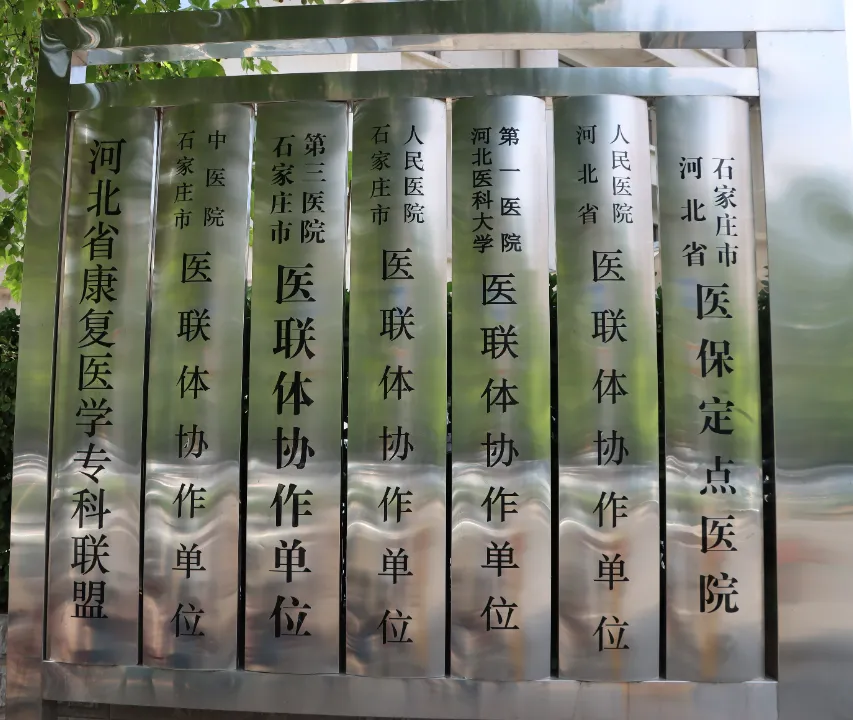 河北省康复医学专科联盟
石家庄市
中医院
医联体协作单位
石家庄市
第三医院
医联体协作单位
石家庄市
人民医院
医联体协作单位
河北医科大学
第一医院
医联体协作单位
河北省
人民医院
医联体协作单位
河北省
石家庄市
医保定点医院